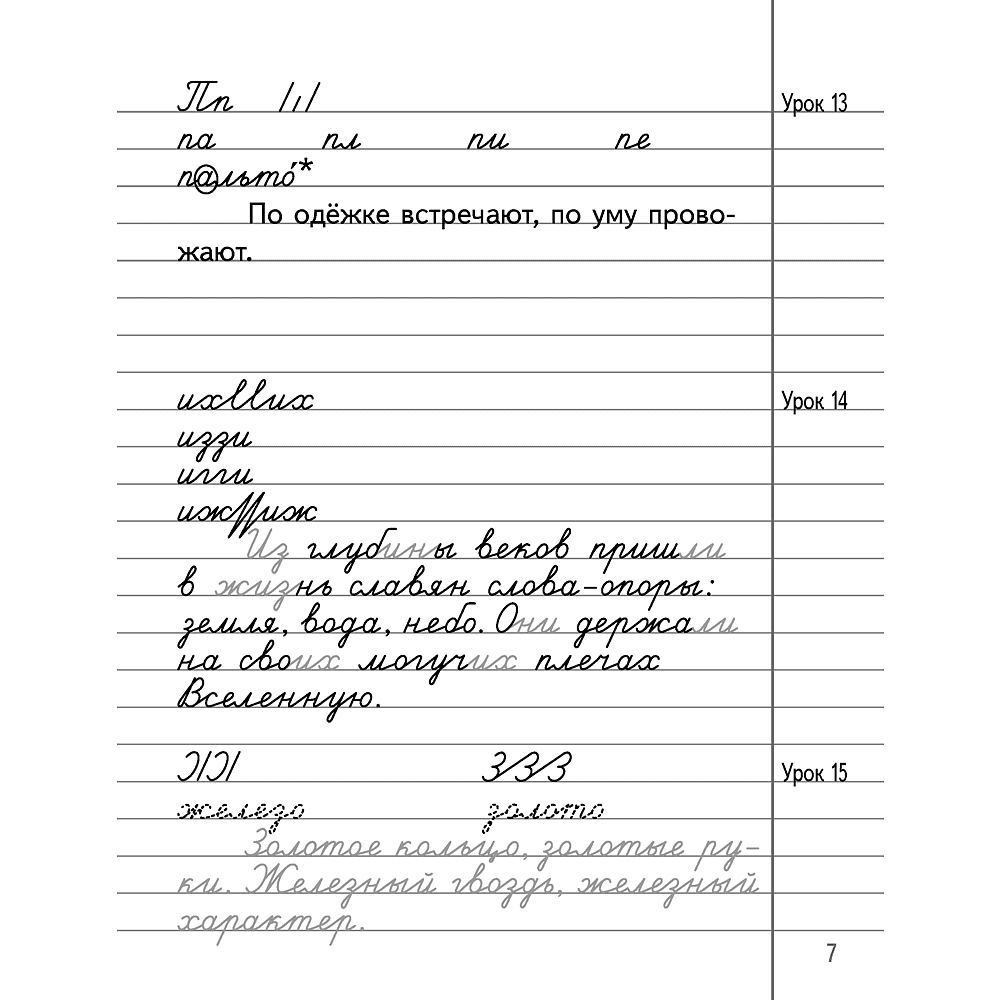 Пп Урок 13
па пл пи пе
пальто́*
По одёжке встречают, по уму прово-
жают.
ихllих Урок 14
иззи
игги
ижиж
Из глубины веков пришли
в жизнь славян слова-опоры:
земля, вода, небо. Они держали
на своих могучих плечах
Вселенную.
З З З Урок 15
железо золото
Золотое кольцо, золотые ру-
ки. Железный гвоздь, железный
характер.
7